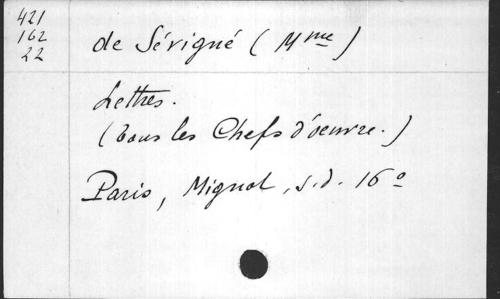 421
162
22
de Sérigné (Mme)
Lettres.
(Tous les Chefs d'oeuvre.)
Paris, Mignot, s.d. 16°